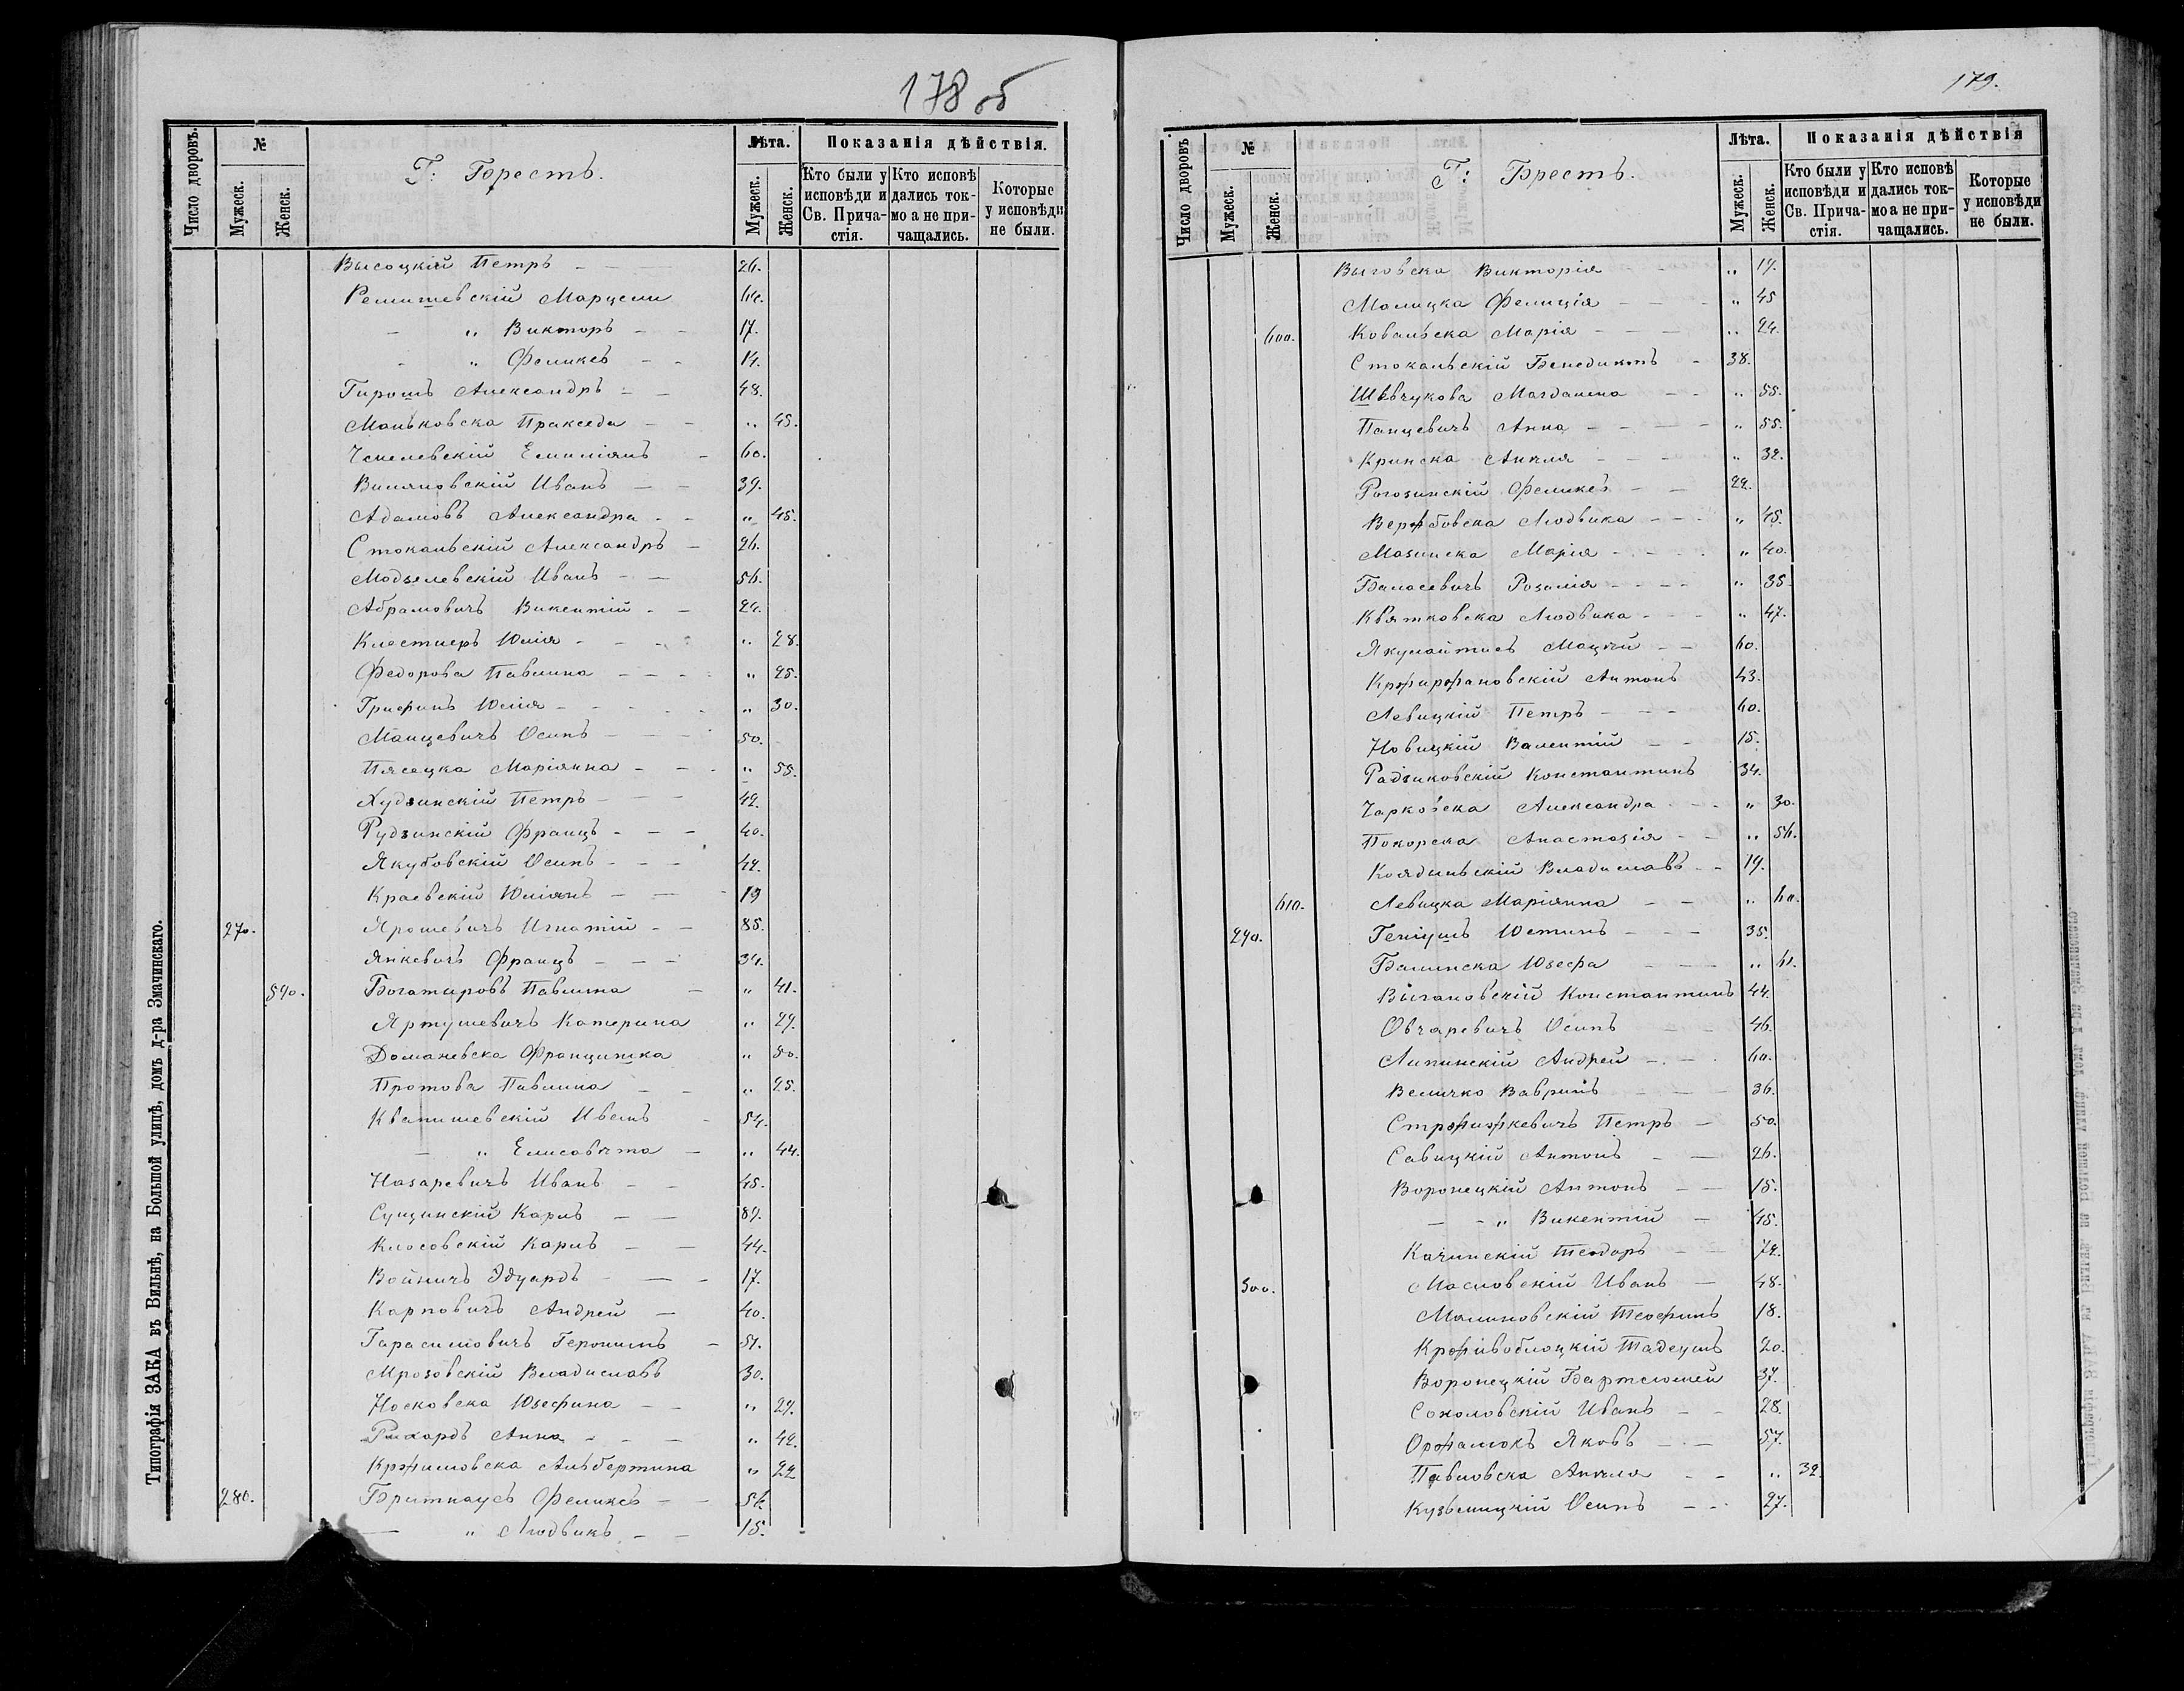 178 об
Число дворовъ.
№
Мужеск.
Женск.
Г: Брестъ.
Лѣта.
Мужеск.
Женск.
Показанія дѣйствія.
Кто были у исповѣди и Св. Причастія.
Кто исповѣдались токмо а не причащались.
Которые у исповѣди не были.
Высоцкій Петръ - - 26.
Ремишевскій Марцели
- " Викторъ - - 17.
- " Феликсъ - - 14.
Гирошъ Александръ - - 48.
Маньковска Пракседа - - " 45.
Чепелевскій Емиліянъ - 60.
Виляновскій Иванъ - - 39.
Адамовъ Александра - - " 45.
Стокальскій Александръ - 26.
Модзелевскій Иванъ - - 56.
Абрамовичъ Викентій - - 24.
Клостмеръ Юлія - - - " 28.
Федорова Павлина - - - " 25.
Грифинъ Юлія - - - - " 30.
Манцевичъ Осипъ - - - 50.
Пясецка Маріянна - - - " 55.
Худзинскій Петръ - - - 42.
Рудзинскій Францъ - - - 40.
Якубовскій Осипъ - - - 42.
Краевскій Юліянъ - - 19
270. Ярошевичъ Игнатій - - 85.
Янкевичъ Францъ - - - 34.
590. Богатыровъ Павлина - " 41.
Яртушевичъ Катерина " 29.
Доманевска Францишка " 50.
Протова Павлина - - " 25.
Квапишевскій Иванъ - 54.
- " Елисавѣта - " 44.
Назаревичъ Иванъ - - 45.
Сущинскій Карлъ - - 89.
Клосовскій Карлъ - - 44.
Войничъ Эдуардъ - - - 17.
Карповичъ Андрей - 40.
Гарасимовичъ Геронимъ - 51.
Мрозовскій Владиславъ 30.
Носковска Юзефина - - " 29.
Рихардъ Анна - - - " 42.
Кржимовска Альбертина " 22
280. Бритнаусъ Феликсъ - - 56.
- " Людвикъ - - 15.
Типографія ЗАКА въ Вильнѣ, на Большой улицѣ, домъ д-ра Змачинскаго.
179.
Число дворовъ.
№
Мужеск.
Женск.
Г: Брестъ.
Лѣта.
Мужеск.
Женск.
Показанія дѣйствія
Кто были у исповѣди и Св. Причастія.
Кто исповѣдались токмо а не причащались.
Которые у исповѣди не были.
Выговска Викторія " 19.
Малицка Фелиція - - - " 45
600. Ковальска Марія - - - " 24.
Стокальскій Бенедиктъ - 38.
Шевчукова Магдалена - - " 55.
Панцевичъ Анна - - - - " 55.
Кринска Анѣля - - - " 32.
Рогозинскій Феликсъ - - 22.
Вержбовска Людвика - - - " 45.
Мазинска Марія - - - - " 40.
Баласевичъ Розалія - - - - " 35.
Квятковска Людвика - - - " 47.
Якулайтисъ Мацѣй - - 60.
Кржиржановскій Антонъ 43.
Левицкій Петръ - - - 60.
Новицкій Валентій - - 15.
Радзиковскій Константинъ 34.
Чарковска Александра - - - " 30.
Покорска Анастазія - - " 56.
Колдынскій Владиславъ - - 19.
610. Левицка Маріянна - - " 60.
290. Геніушъ Юстинъ - - - 35.
Балинска Юзефа - - - "
Выгановскій Константинъ 44.
Овчаревичъ Осипъ - - 46.
Липинскій Андрей - - 60.
Величко Вавринъ - - 36.
Стржижкевичъ Петръ - 50.
Савицкій Антонъ - - 26.
Воронецкій Антонъ - - 15.
- - " Викентій - 45.
Качинскій Теодоръ - - 72.
300. Масловскій Иванъ - 48.
Малиновскій Теофилъ 18.
Крживоблоцкій Тадеушъ 20.
Воронецкій Бартеломей 37.
Соколовскій Иванъ - - 28.
Оржалюкъ Яковъ - - - 57.
Павловска Анѣля - - " 32.
Кузьмицкій Осипъ - - - 27.